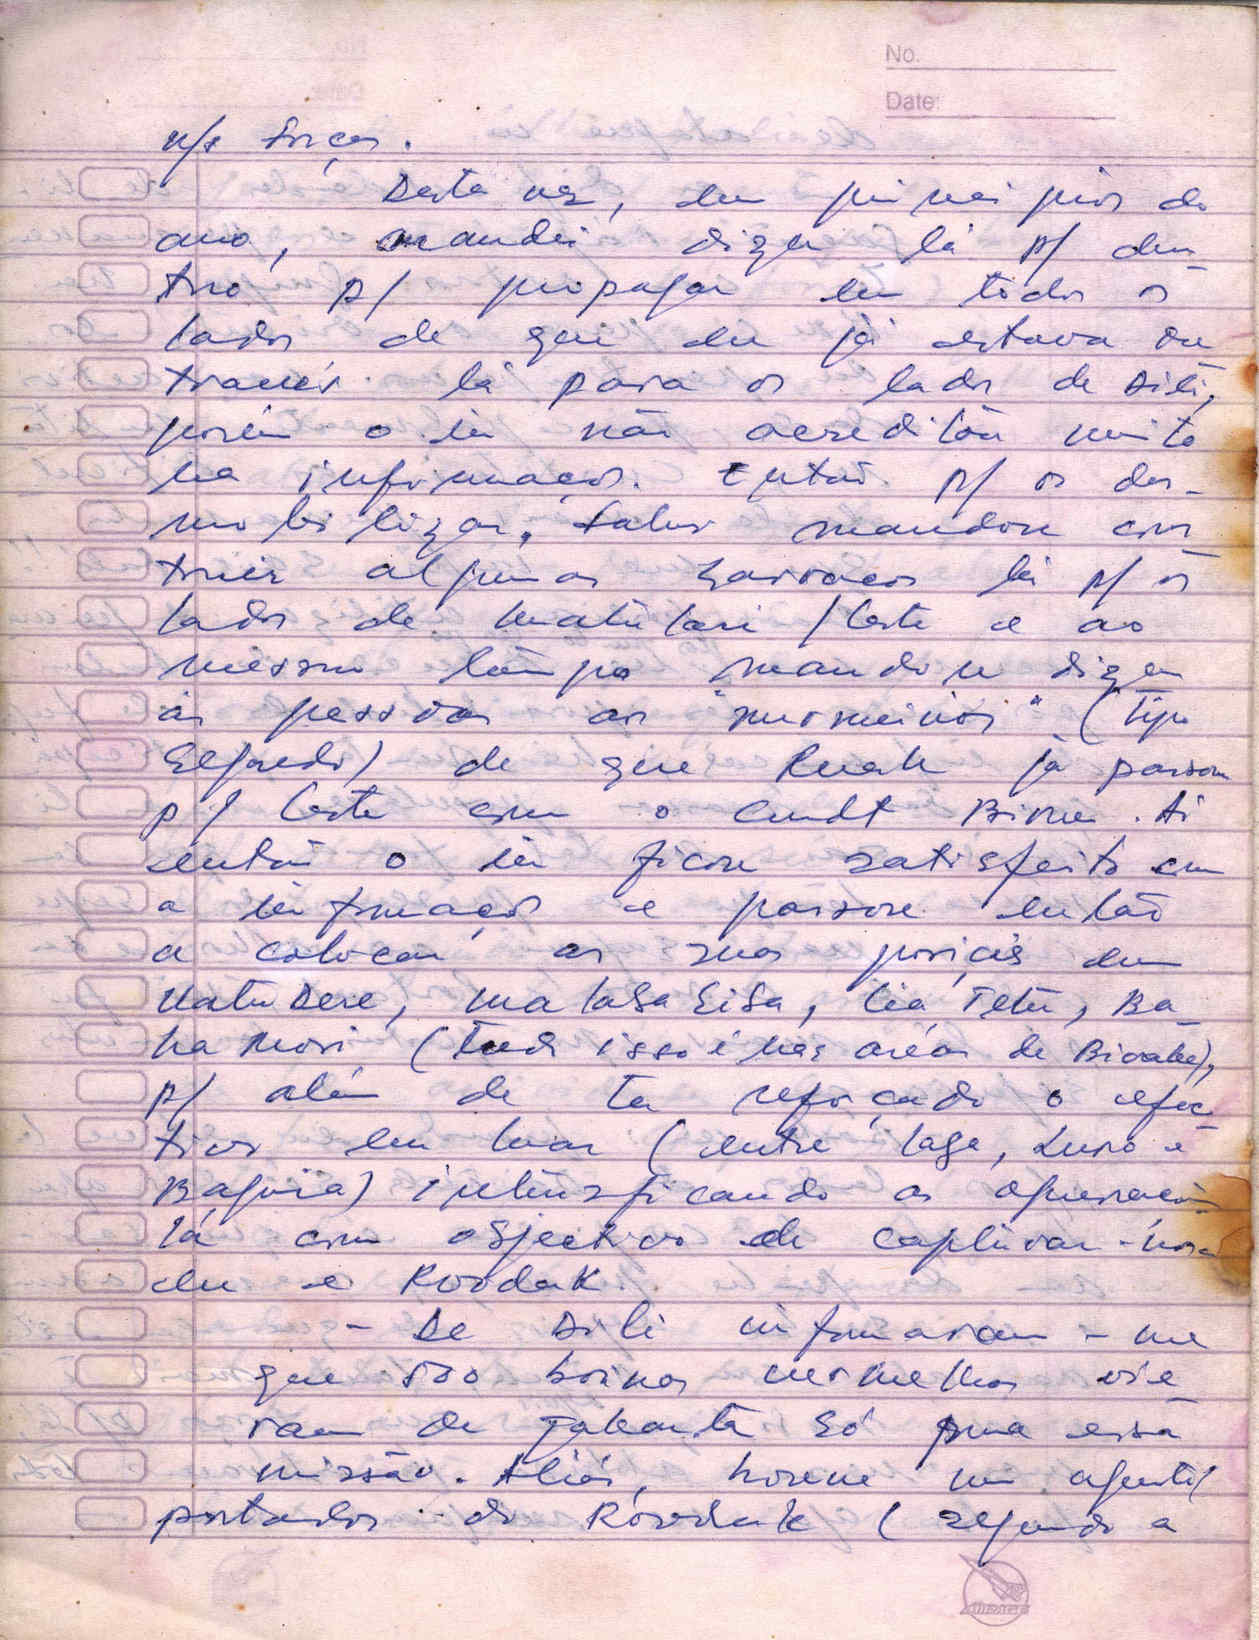 No.
Date:
n/s forças.
Desta vez, em princípios do
ano, mandei dizer lá p/ den-
tro p/ propagar em todos os
lados de que eu já estava ou
través lá para os lados de Dili,
porém o in não acreditou muito
na informação. Então p/ os des-
mobilizar, Falur mandou cons
truir algumas barracas lá p/ os
lados de /Leste e ao
mesmo tempo mandou dizer
às pessoas os "murmúrios" (tipo
Elfredo) de que Ruak já passou
p/ Leste com o Cmdt . Aí
então o in ficou satisfeito com
a informação e passou então
a colocar as suas posições em
Natu Dere, Malaga Giga, Lia Tetu, Ba-
ha Mori (tudo isso é nas áreas de ),
p/ além de ter reforçado o efec-
tivos em (entre Laga, Luro e
Baguia) intensificando as operações
lá com objectivo de captivar-nos
eu e Roodak.
- De Dili informaram-me
que 500 boinas vermelhas vie-
ram de Jakarta só para essa
missão. Aliás, houve um agente/
portador do Roodak (segundo a
MIRAGE